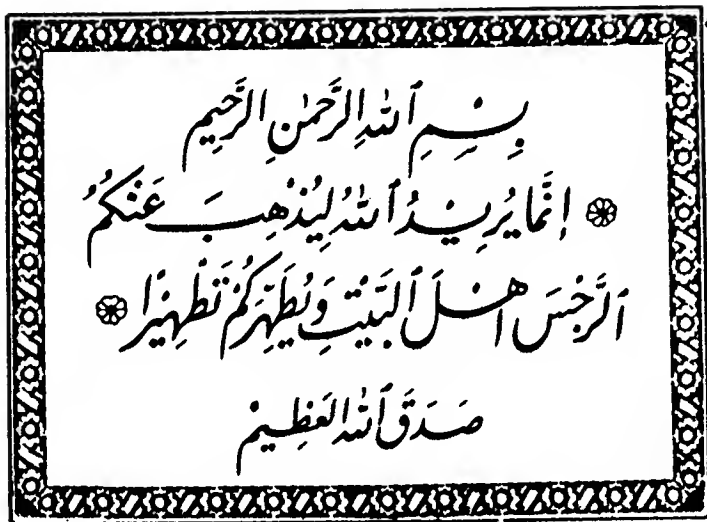 بِسْمِ ٱللهِ الرَّحْمٰنِ الرَّحِيْمِ
إِنَّمَا يُرِيْدُ ٱللهُ لِيُذْهِبَ عَنْكُمُ
ٱلرِّجْسَ اهْلَ ٱلبَيْتِ وَيُطَهِّرَكُمْ تَطْهِيْرًا
صَدَقَ ٱللهُ العَظِيْمْ